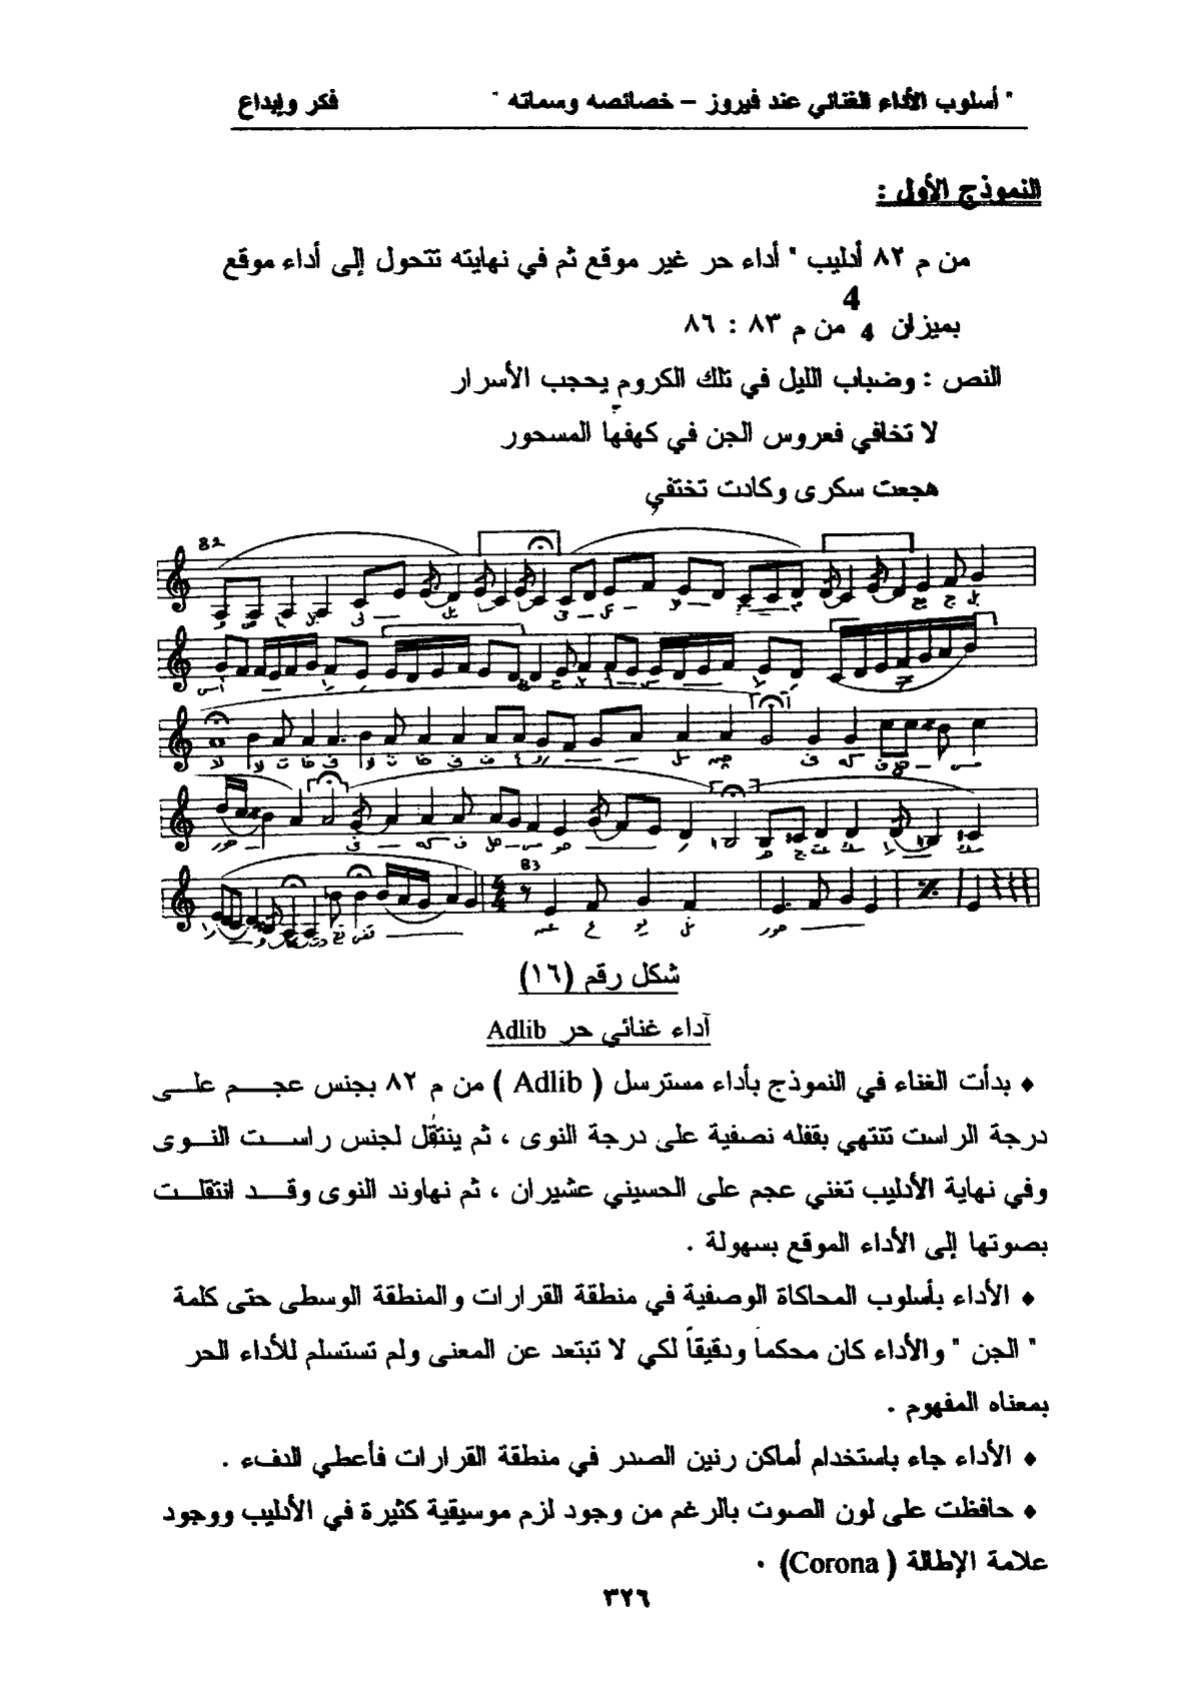 " أسلوب الأداء الغنائي عند فيروز – خصائصه وسماته " فكر وإبداع
النموذج الأول :
من م ٨٢ أدليب " أداء حر غير موقع ثم في نهايته تتحول إلى أداء موقع
بميزان 4 4 من م ٨٣ : ٨٦
النص : وضباب الليل في تلك الكروم يحجب الأسرار
لا تخافي فعروس الجن في كهفها المسحور
هجعت سكرى وكادت تختفي
82
83
4 4
شكل رقم (١٦)
آداء غنائي حر Adlib
♦ بدأت الغناء في النموذج بأداء مسترسل ( Adlib ) من م ٨٢ بجنس عجم على
درجة الراست تنتهي بقفله نصفية على درجة النوى ، ثم ينتقل لجنس راست النوى
وفي نهاية الأدليب تغني عجم على الحسيني عشيران ، ثم نهاوند النوى وقد انتقلت
بصوتها إلى الأداء الموقع بسهولة .
♦ الأداء بأسلوب المحاكاة الوصفية في منطقة القرارات والمنطقة الوسطى حتى كلمة
" الجن " والأداء كان محكماً ودقيقاً لكي لا تبتعد عن المعنى ولم تستسلم للأداء الحر
بمعناه المفهوم .
♦ الأداء جاء باستخدام أماكن رنين الصدر في منطقة القرارات فأعطي الدفء .
♦ حافظت على لون الصوت بالرغم من وجود لزم موسيقية كثيرة في الأدليب ووجود
علامة الإطالة ( Corona) .
٣٢٦